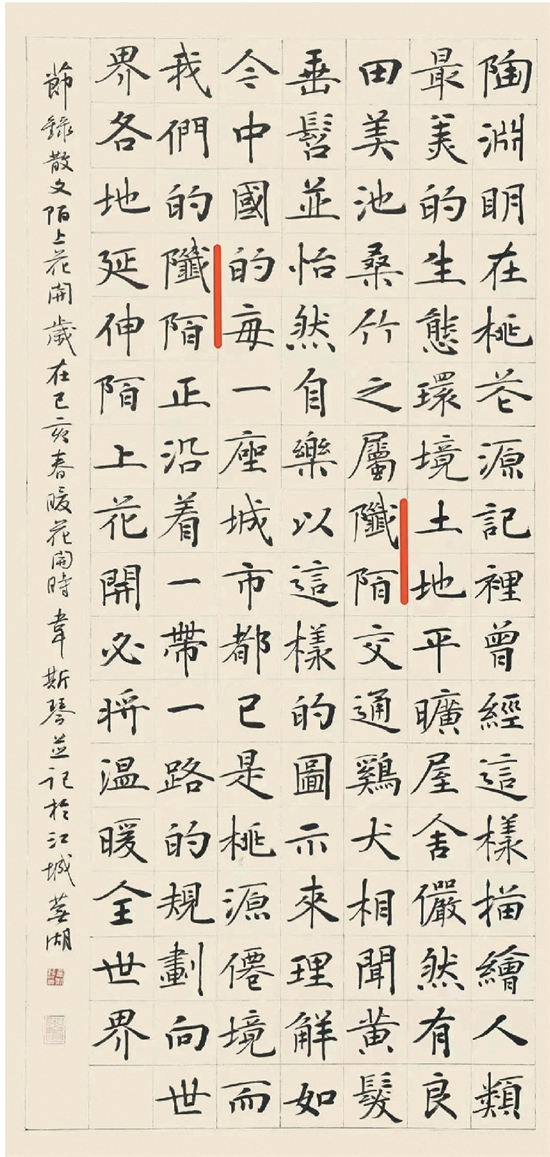 陶淵明在桃花源記裡曾經這樣描繪人類
最美的生態環境土地平曠屋舍儼然有良
田美池桑竹之屬陌交通鷄犬相聞黄髮
垂髫並怡然自樂以這樣的圖示來理解如
今中國的每一座城市都已是桃源僊境而
我們的陌正沿着一帶一路的規劃向世
界各地延伸陌上花開必將温暖全世界
節錄散文陌上花開歲在己亥春暖花開時韋斯琴並記於江城蕪湖